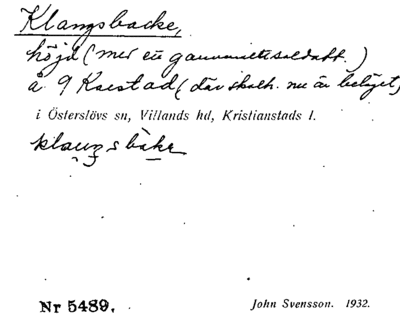 Klangsbacke,
höjd (med en gammalt soldatt.)
å 9 Karstad (där skolh. nu är beläget)
i Österslövs sn, Villands hd, Kristianstads l.
klaŋsbakə
Nr 5489. John Svensson. 1932.